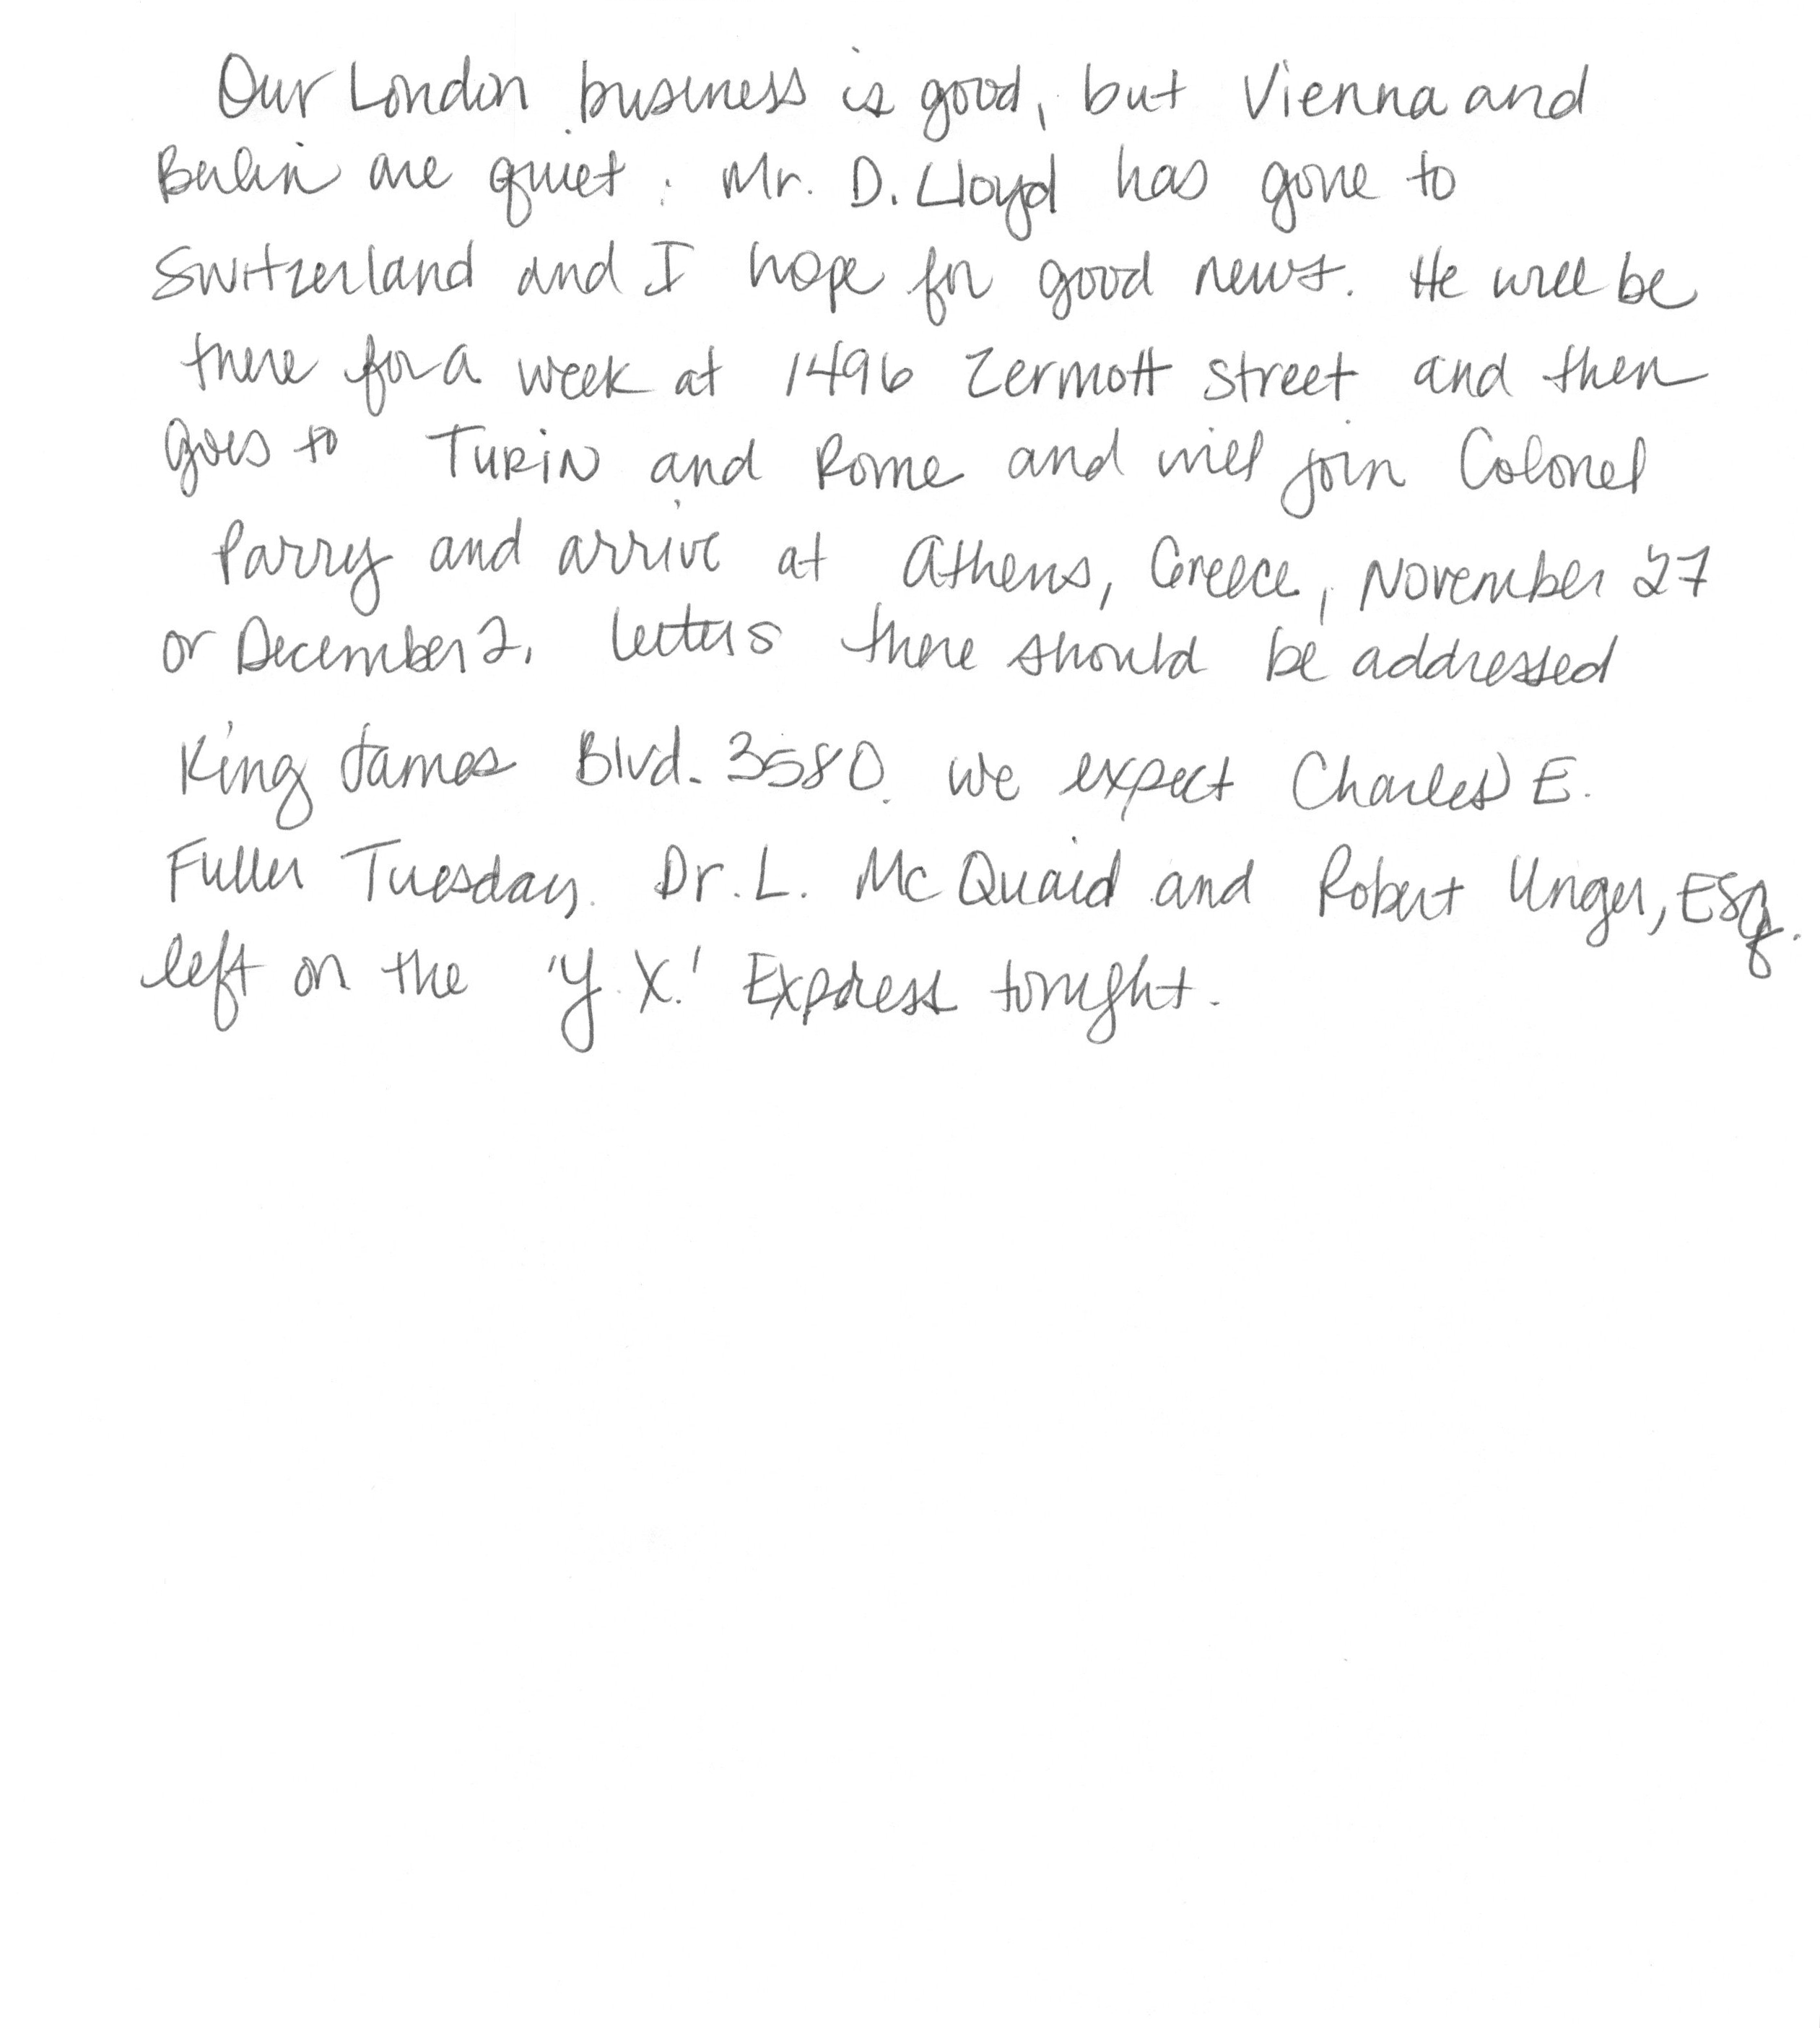 Our London business is good, but Vienna and
Berlin are quiet. Mr. D. Lloyd has gone to
Switzerland and I hope for good news. He will be
there for a week at 1496 Zermott street and then
goes to Turin and Rome and will join Colonel
Parry and arrive at Athens, Greece, November 27
or December 2. Letters there should be addressed
King James Blvd. 3580. We expect Charles E.
Fuller Tuesday. Dr. L. McQuaid and Robert Unger, Esq.
left on the 'Y.X.' Express tonight.